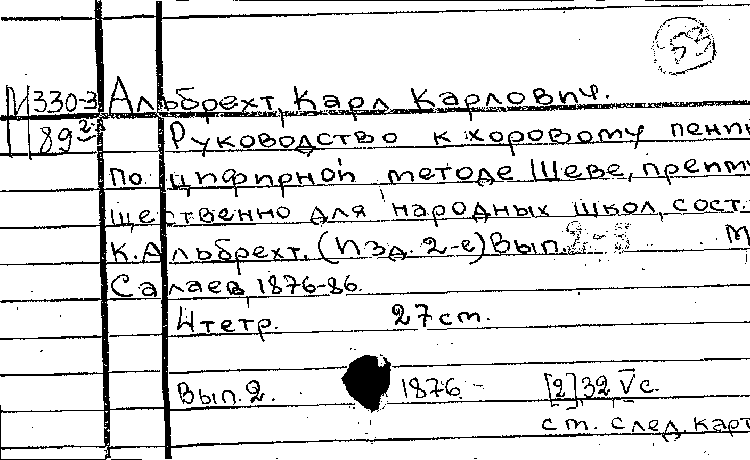 53
М330-3 Альбрехт, Карл Карлович.
89 2 Руководство к хоровому пени
по цифирной методе Шеве, преим
щественно для народных школ, сост.
К. Альбрехт. (Изд. 2-е) Вып. 2-3 М
Салаев, 1876-86.
4 тетр. 27 cm.
Вып. 2. 1876 - [2] 32 V с.
см. след. карт